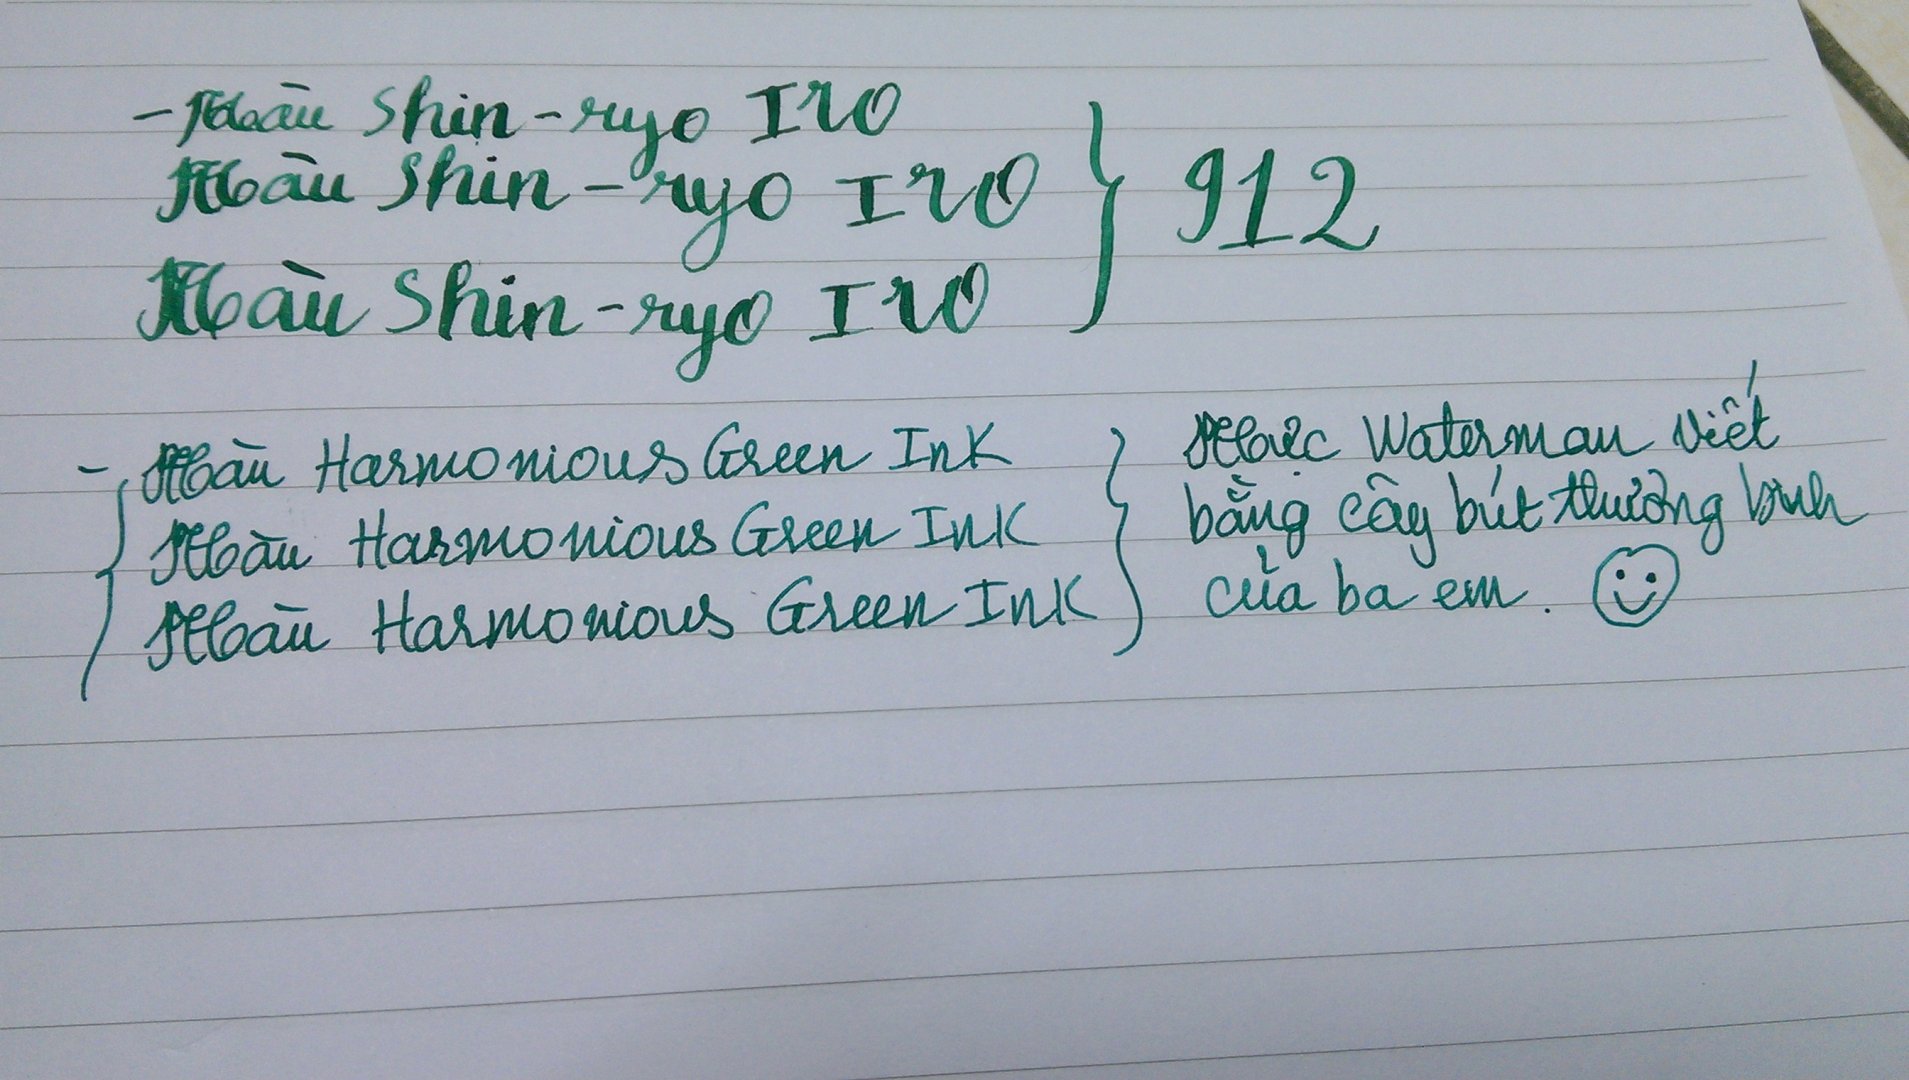 - Màu Shin-ryo Iro
Màu Shin-ryo Iro
Màu Shin-ryo Iro
912
- Màu Harmonious Green Ink
Màu Harmonious Green Ink
Màu Harmonious Green Ink
Mực Waterman viết
bằng cây bút thương binh
của ba em. ☺